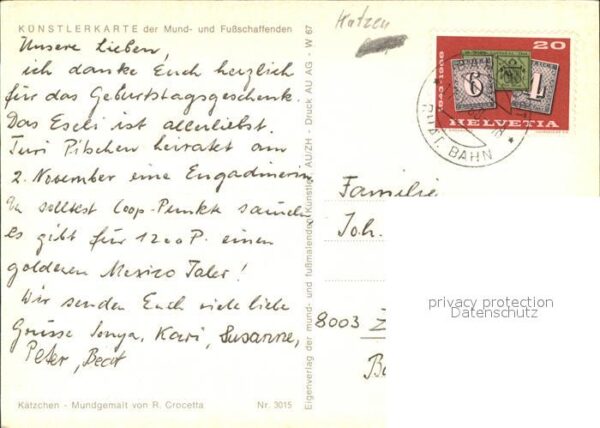 KÜNSTLERKARTE der Mund- und Fußschaffenden
Unsere Lieben,
ich danke Euch herzlich
für das Geburtstagsgeschenk.
Das Eseli ist allerliebst.
Turi Pitschen heiratet am
2. November eine Engadinerin.
Du solltest Coop-Punkte sammeln
es gibt für 1200 P. einen
goldenen Mexico Taler!
Wir senden Euch viele liebe
Grüsse Sonya, Kari, Susanne,
Peter, Beat
Kätzchen - Mundgemalt von R. Crocetta Nr. 3015
Eigenverlag der mund- und fußmalenden Künstler AU/ZH - Druck AU AG - W 67
Katzen
20
1843-1968
HELVETIA
BAHN
Familie
Joh.
8003 Z
privacy protection
Datenschutz